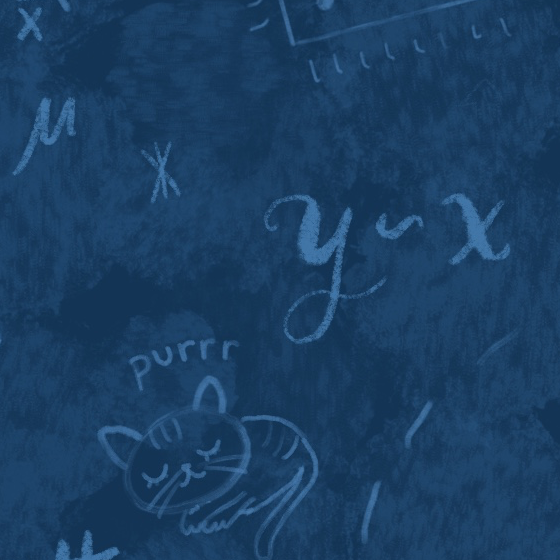 x
μ
*
y ~ x
purrr